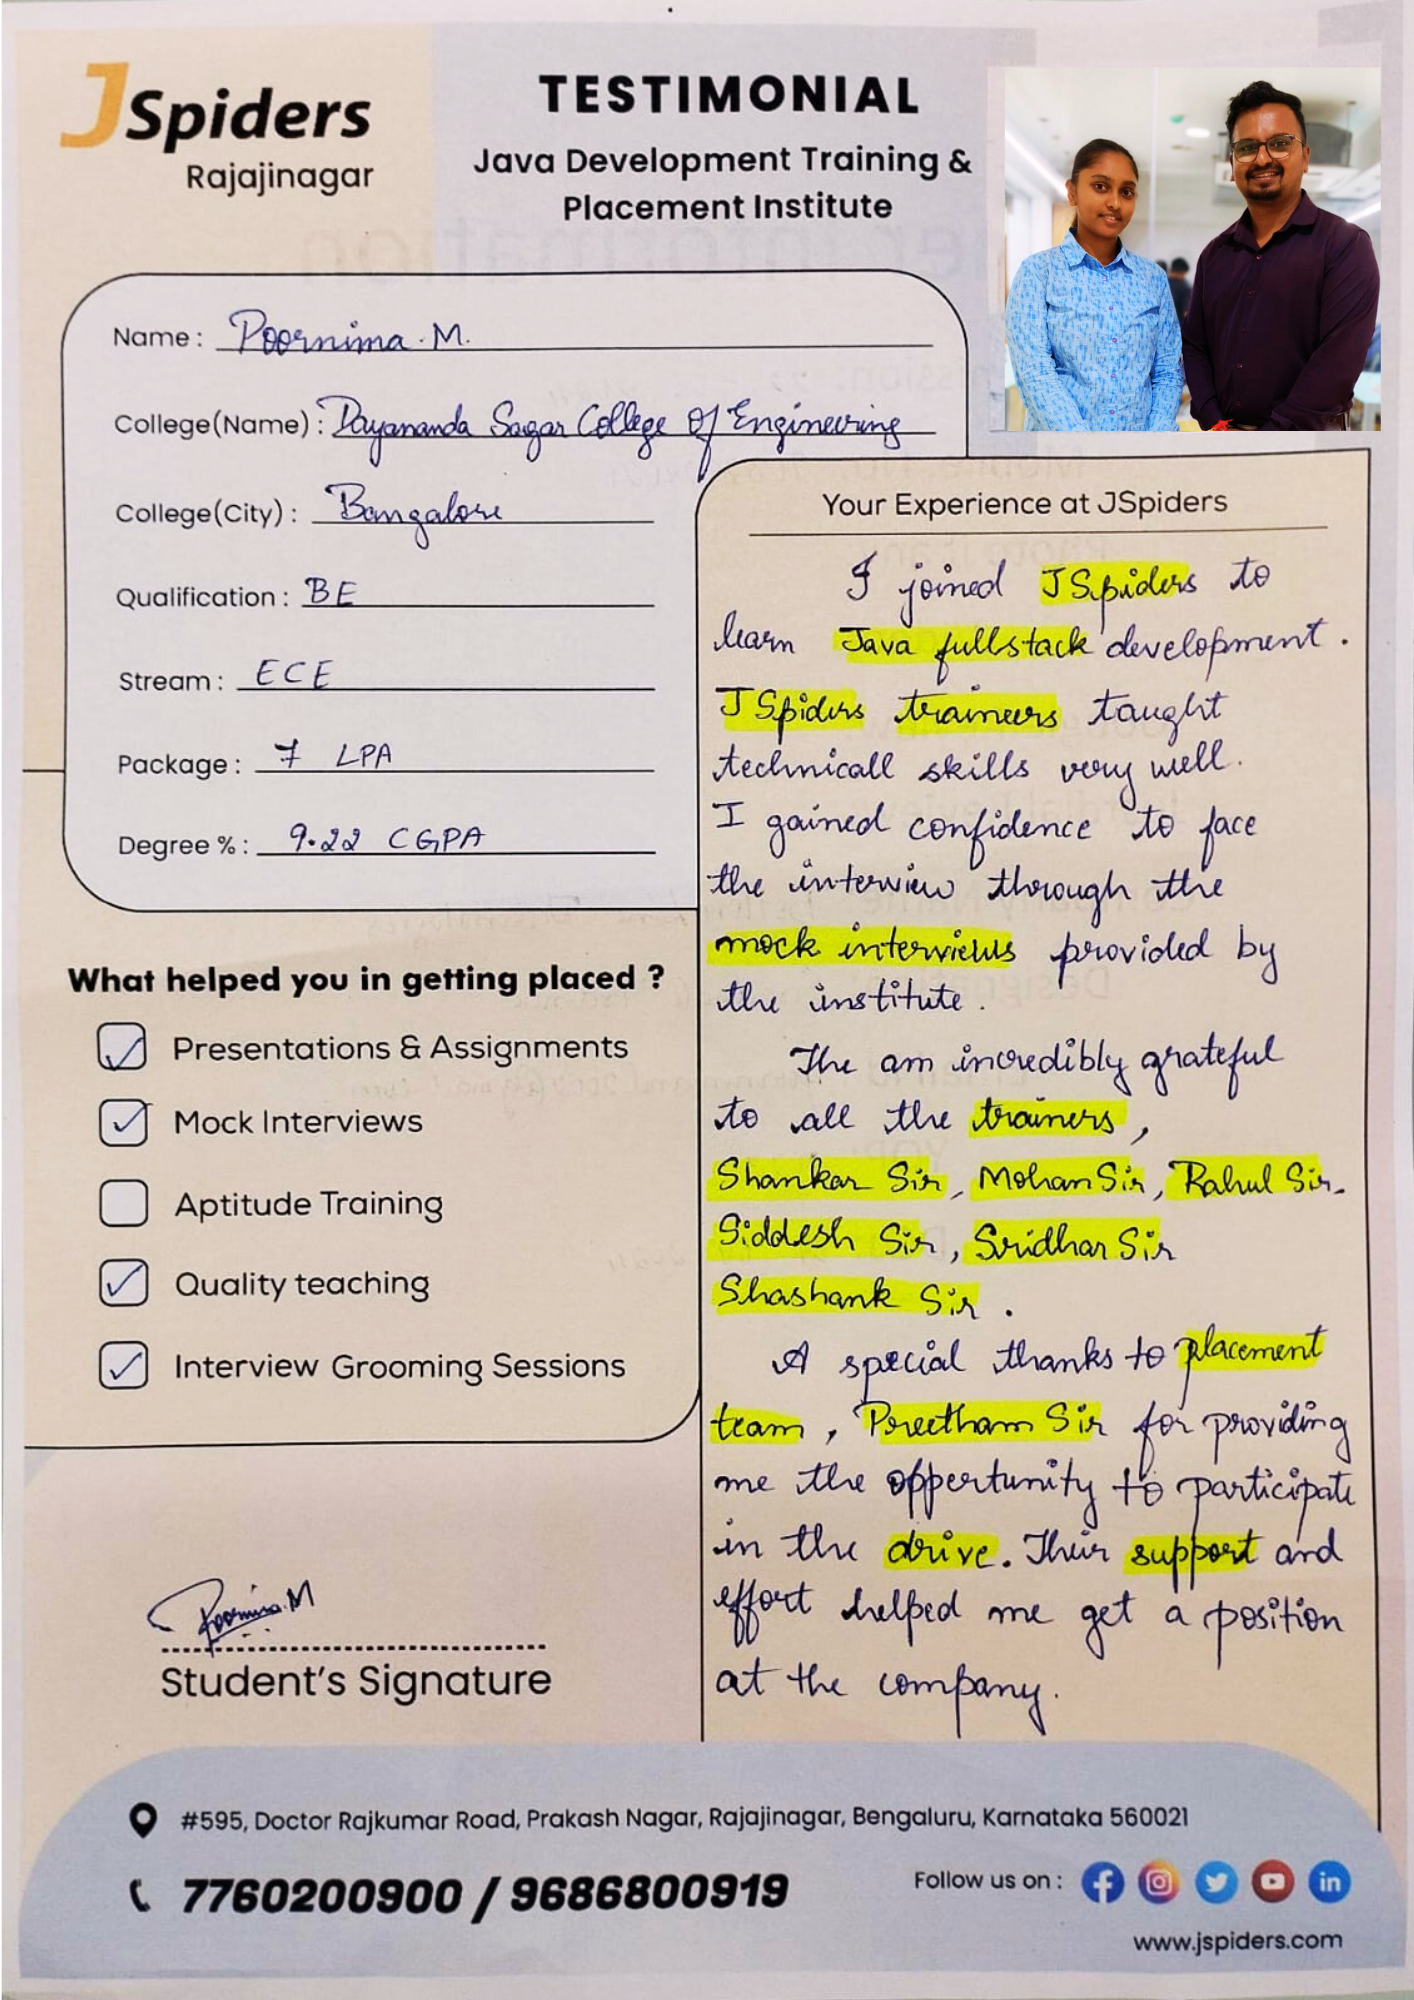 JSpiders
Rajajinagar
TESTIMONIAL
Java Development Training &
Placement Institute
Name : Poornima . M.
College(Name) : Dayananda Sagar College Of Engineering
College(City) : Bangalore
Qualification : BE
Stream : ECE
Package : 7 LPA
Degree % : 9.22 CGPA
What helped you in getting placed ?
Presentations & Assignments
Mock Interviews
Aptitude Training
Quality teaching
Interview Grooming Sessions
Poornima.M
Student's Signature
Your Experience at JSpiders
I joined JSpiders to
learn Java fullstack development.
JSpiders traineers taught
technicall skills very well.
I gained confidence to face
the interview through the
mock interviews provided by
the institute.
The am incredibly grateful
to all the trainers,
Shankar Sir, Mohan Sir, Rahul Sir.
Siddesh Sir, Sridhar Sir
Shashank Sir.
A special thanks to placement
team, Preetham Sir for providing
me the oppertunity to participate
in the drive. Their support and
effort helped me get a position
at the company.
#595, Doctor Rajkumar Road, Prakash Nagar, Rajajinagar, Bengaluru, Karnataka 560021
7760200900 / 9686800919
Follow us on :
www.jspiders.com